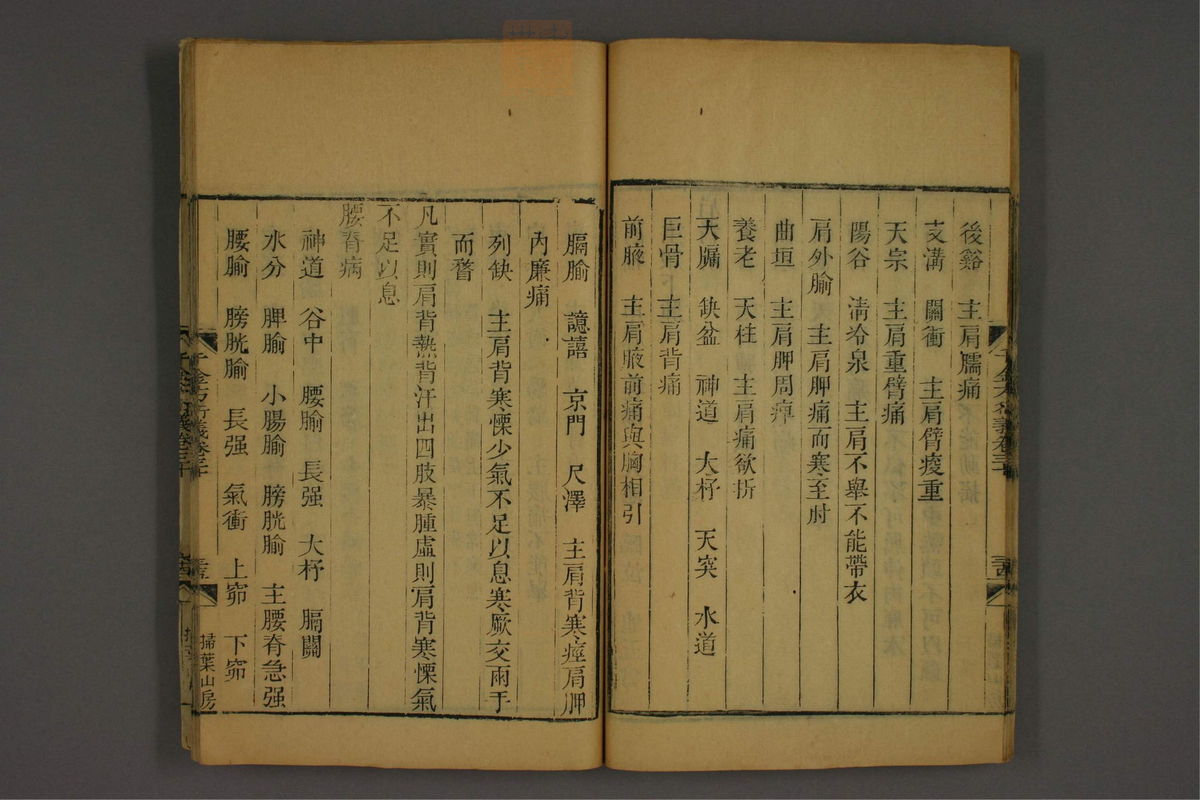 後谿　主肩臑痛
支溝　關衝　主肩臂痠重
天宗　主肩重臂痛
陽谷　淸冷泉　主肩不舉不能帶衣
肩外腧　主肩胛痛而寒至肘
曲垣　主肩胛周痺
養老　天柱　主肩痛欲折
天牖　缺盆　神道　大杼　天突　水道
巨骨　主肩背痛
前腋　主肩腋前痛與胸相引
膈腧　譩譆　京門　尺澤　主肩背寒痙肩胛
內廉痛
列缺　主肩背寒慄少氣不足以息寒厥交兩手
而瞀
凡實則肩背熱背汗出四肢暴腫虛則肩背寒慄氣
不足以息
腰脊病
神道　谷中　腰腧　長强　大杼　膈關
水分　脾腧　小腸腧　膀胱腧　主腰脊急强
腰腧　膀胱腧　長强　氣衝　上窌　下窌
千金方衍義卷三十
掃葉山房